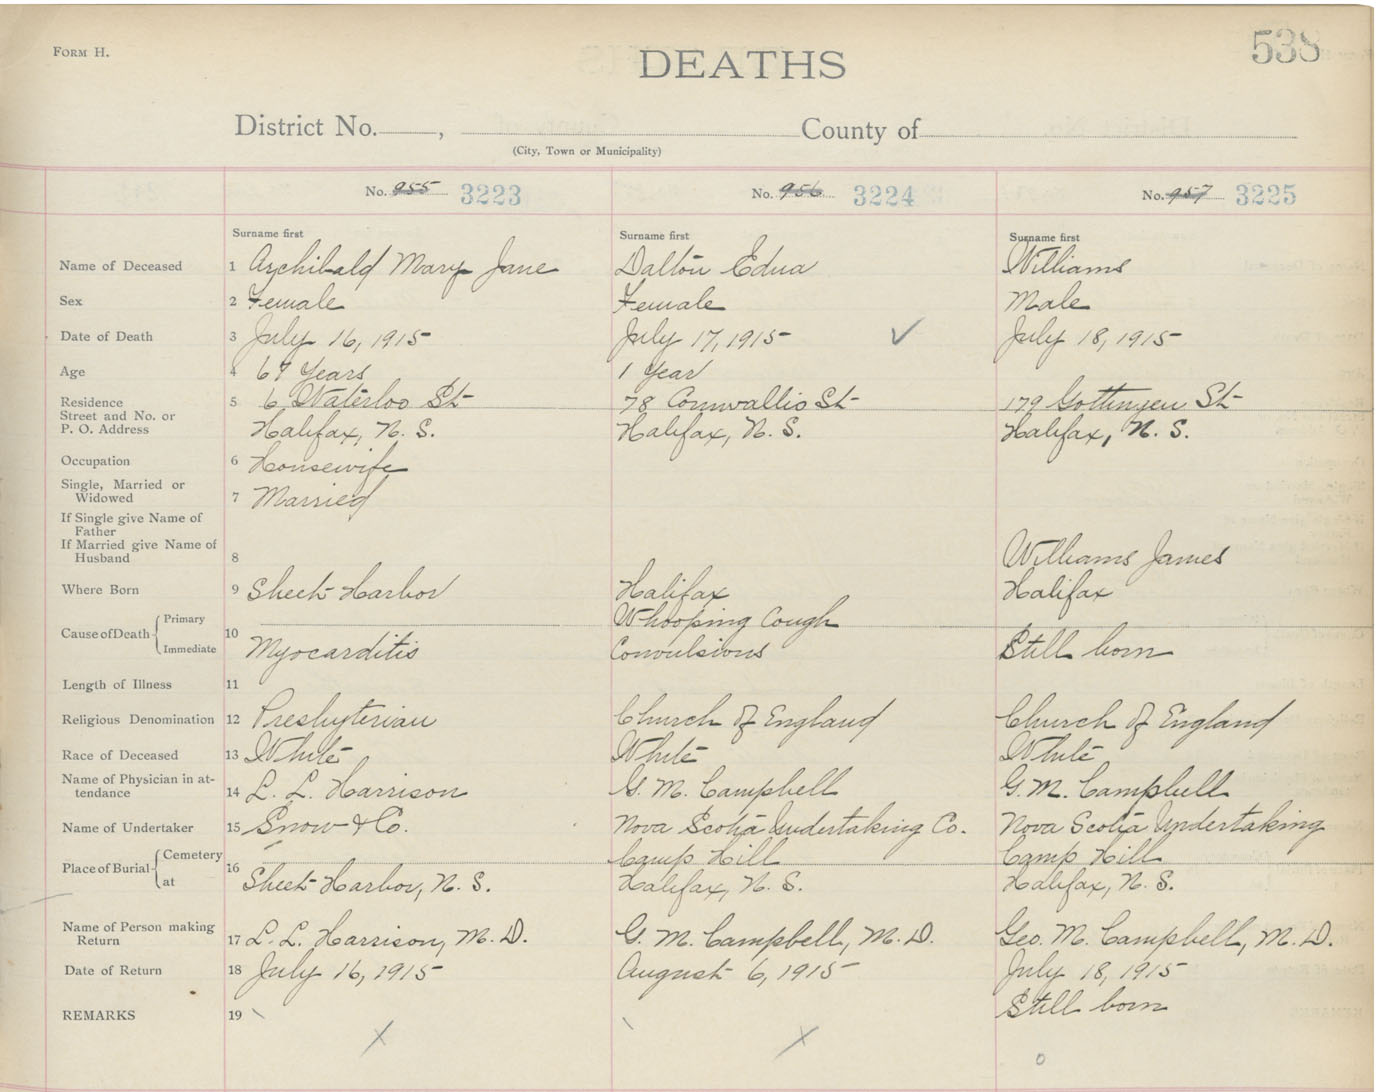 FORM H.
DEATHS
538
District No. , County of
(City, Town or Municipality)
No. 955 3223 No. 956 3224 No. 957 3225
Surname first Surname first Surname first
Name of Deceased 1 Archibald Mary Jane Dalton Edna Williams
Sex 2 Female Female Male
Date of Death 3 July 16, 1915 July 17, 1915 ✓ July 18, 1915
Age 4 67 Years 1 Year
Residence 5 6 Waterloo St 78 Cornwallis St 179 Gottingen St
Street and No. or
P. O. Address Halifax, N. S. Halifax, N. S. Halifax, N. S.
Occupation 6 Housewife
Single, Married or
Widowed 7 Married
If Single give Name of
Father
If Married give Name of
Husband 8 Williams James
Where Born 9 Sheet Harbor Halifax Halifax
Cause of Death Primary 10 Whooping Cough
Immediate Myocarditis Convulsions Still born
Length of Illness 11
Religious Denomination 12 Presbyterian Church of England Church of England
Race of Deceased 13 White White White
Name of Physician in at-
tendance 14 L. L. Harrison G. M. Campbell G. M. Campbell
Name of Undertaker 15 Snow & Co. Nova Scotia Undertaking Co. Nova Scotia Undertaking
Place of Burial Cemetery 16 Camp Hill Camp Hill
at Sheet Harbor, N. S. Halifax, N. S. Halifax, N. S.
Name of Person making
Return 17 L. L. Harrison, M. D. G. M. Campbell, M. D. Geo. M. Campbell, M. D.
Date of Return 18 July 16, 1915 August 6, 1915 July 18, 1915
REMARKS 19 Still born
X X 0